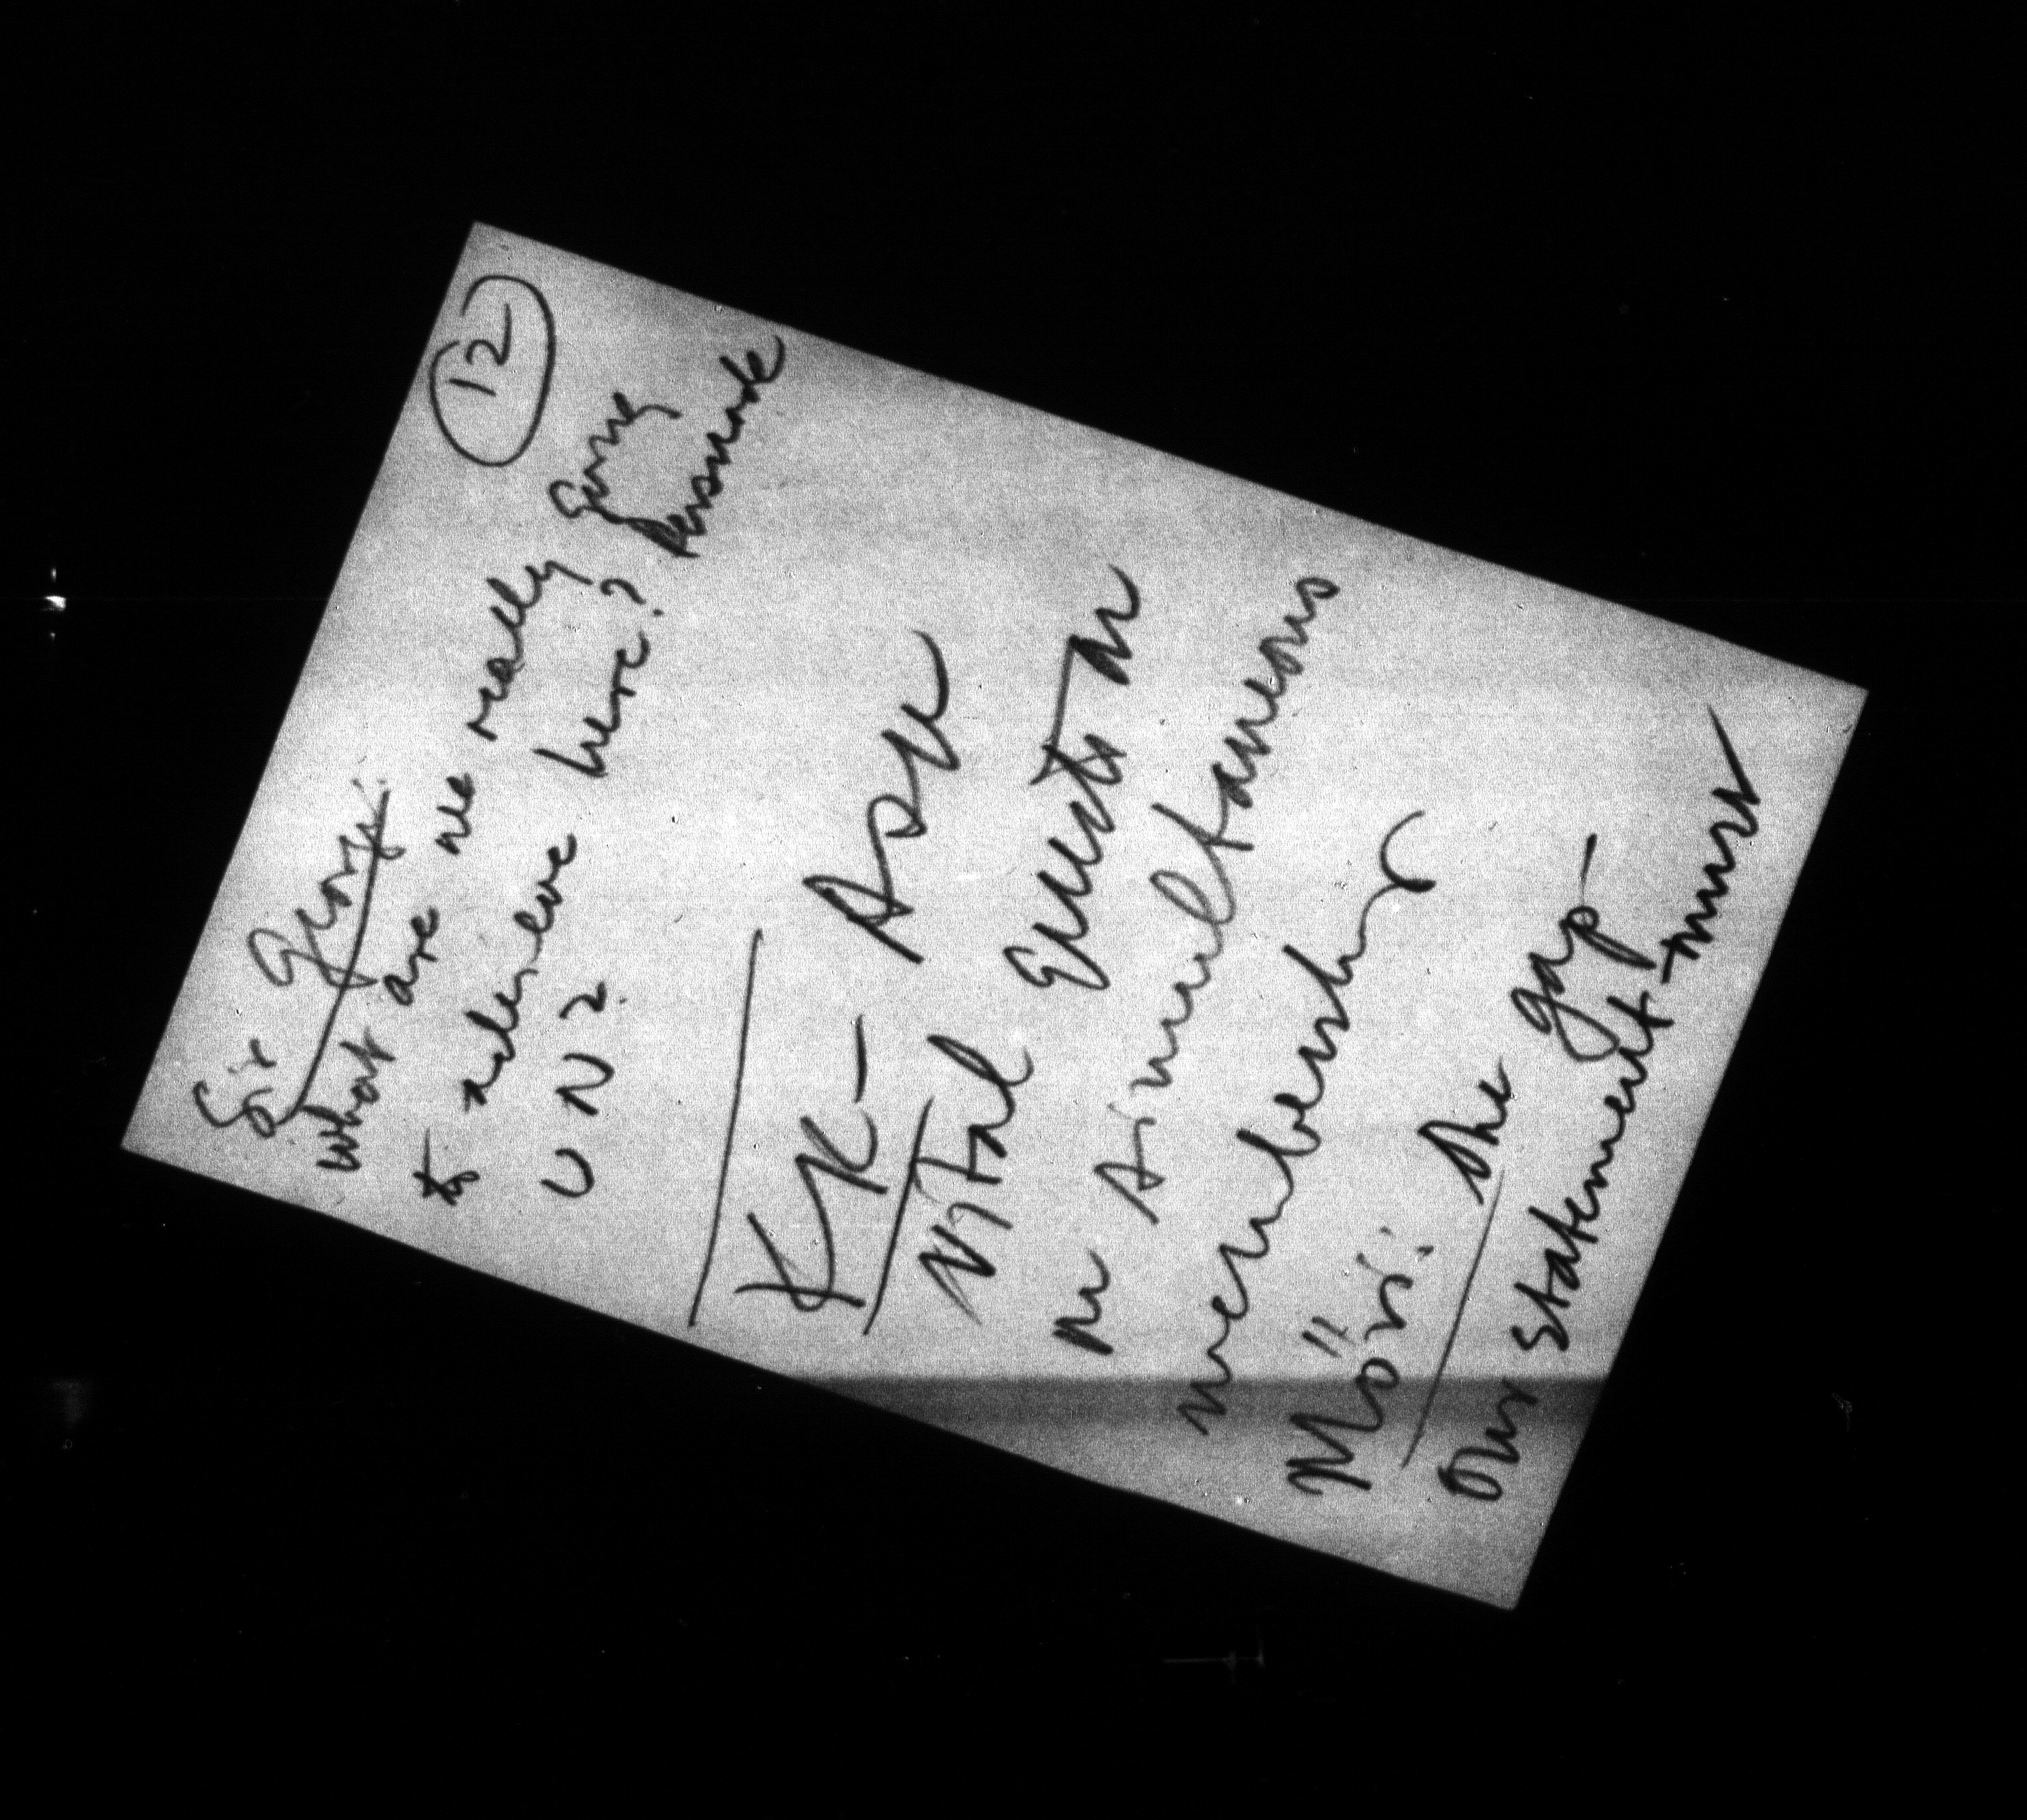 12
Sir George:
What are we really going
to achieve here? Persuade
UN?
KK - Ask
vital question
on simultaneous
membership
Möri: the gap -
our statement must